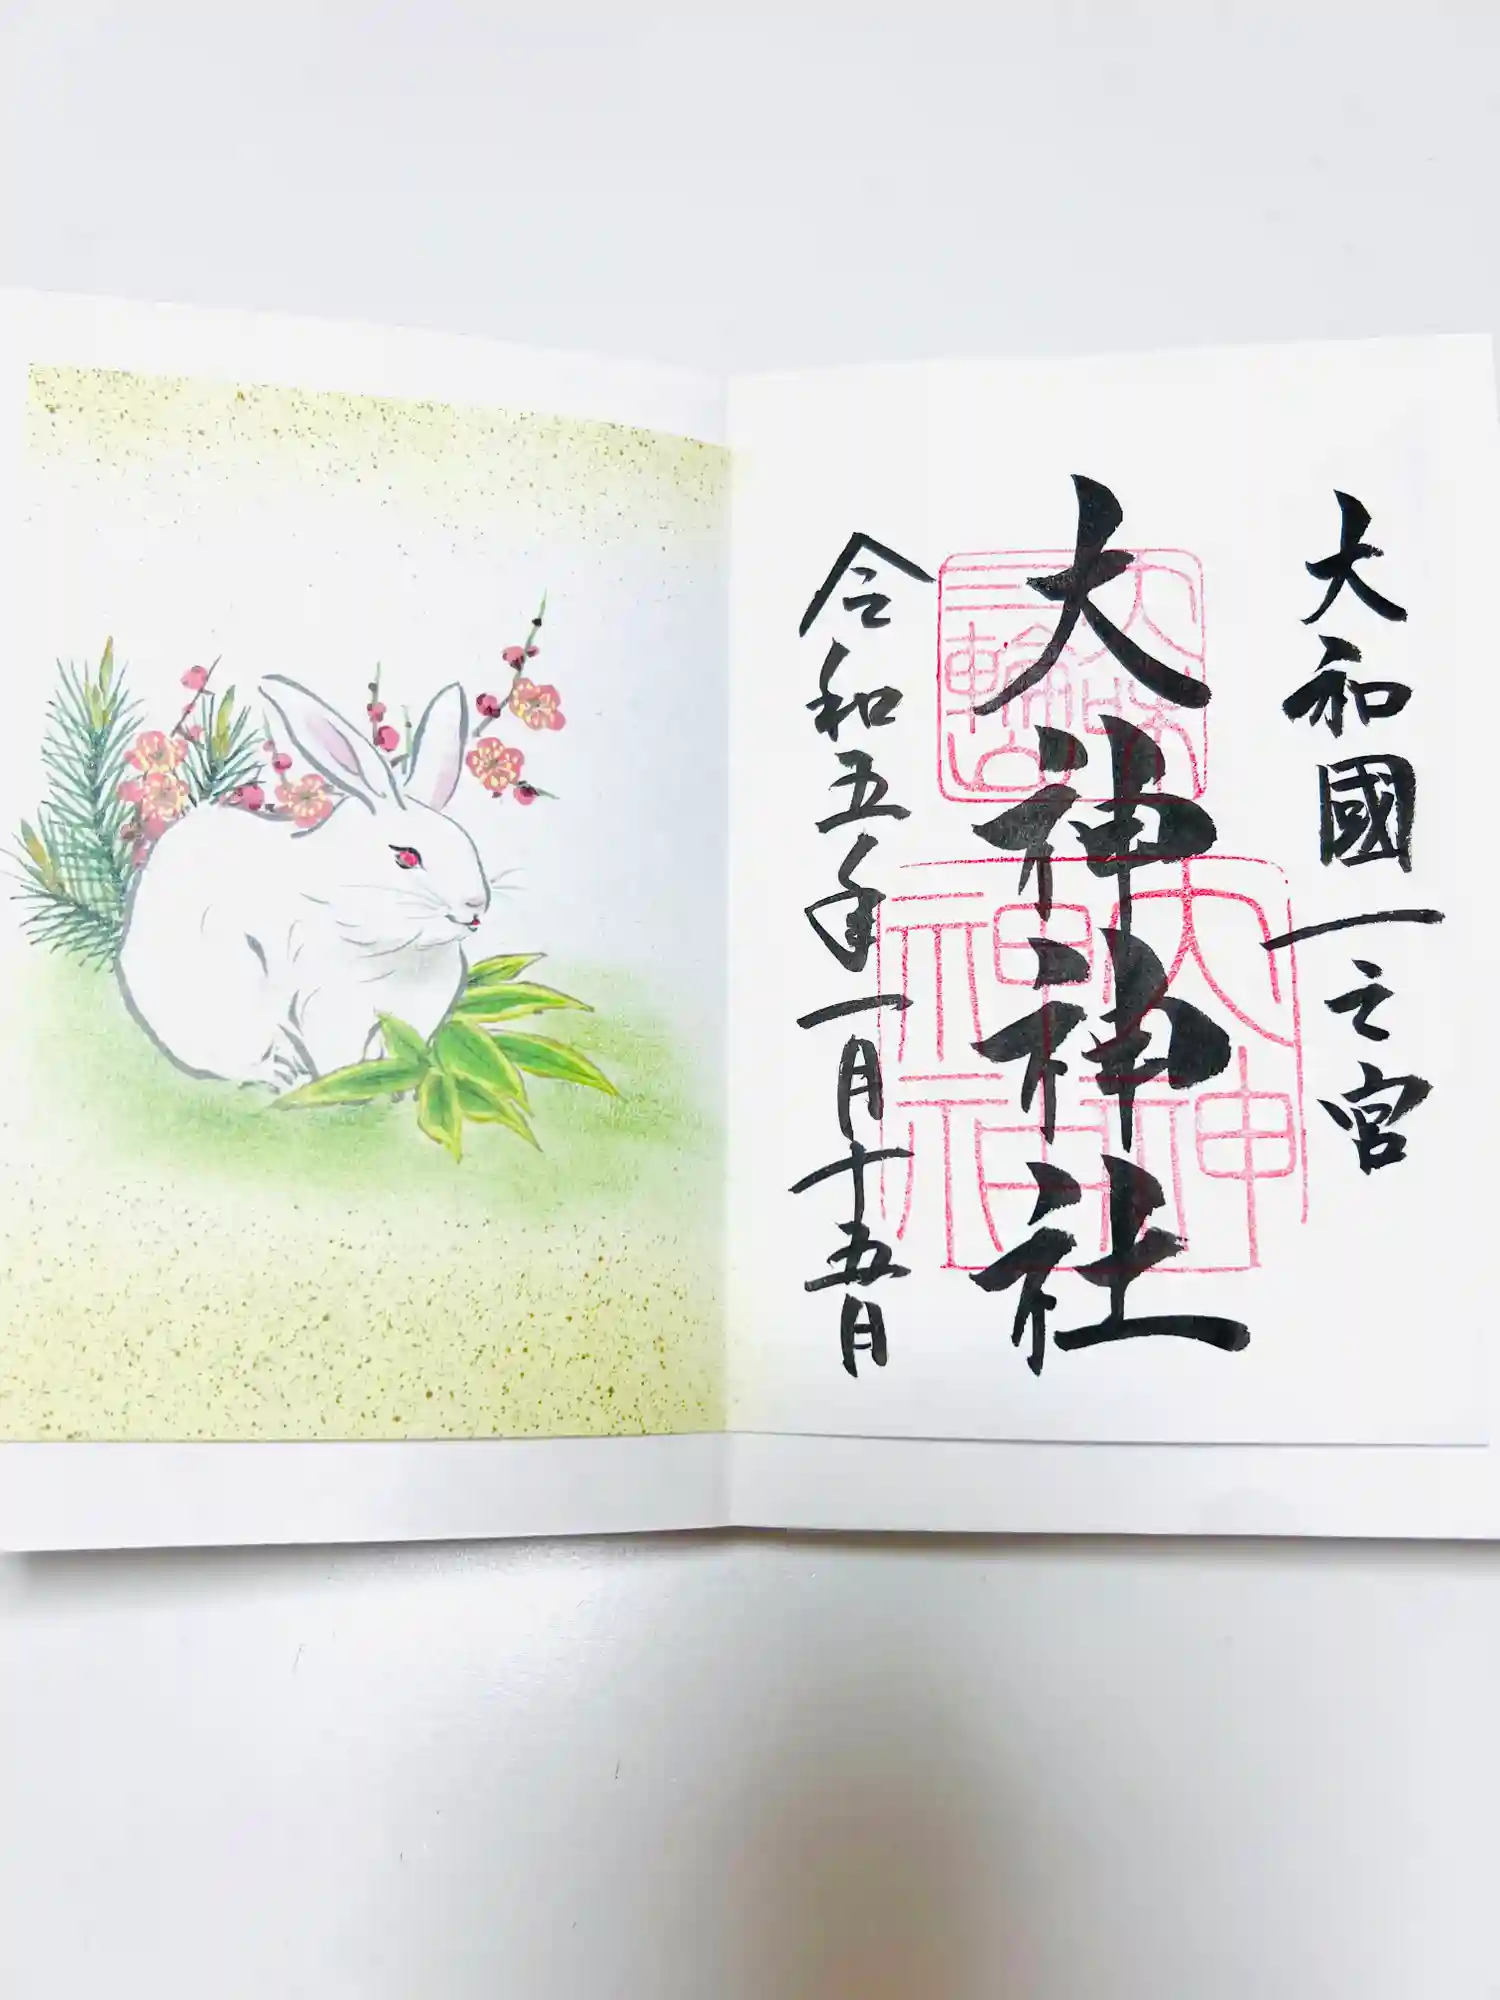 大和國一之宮
大神神社
令和五年一月十五日
大神神社